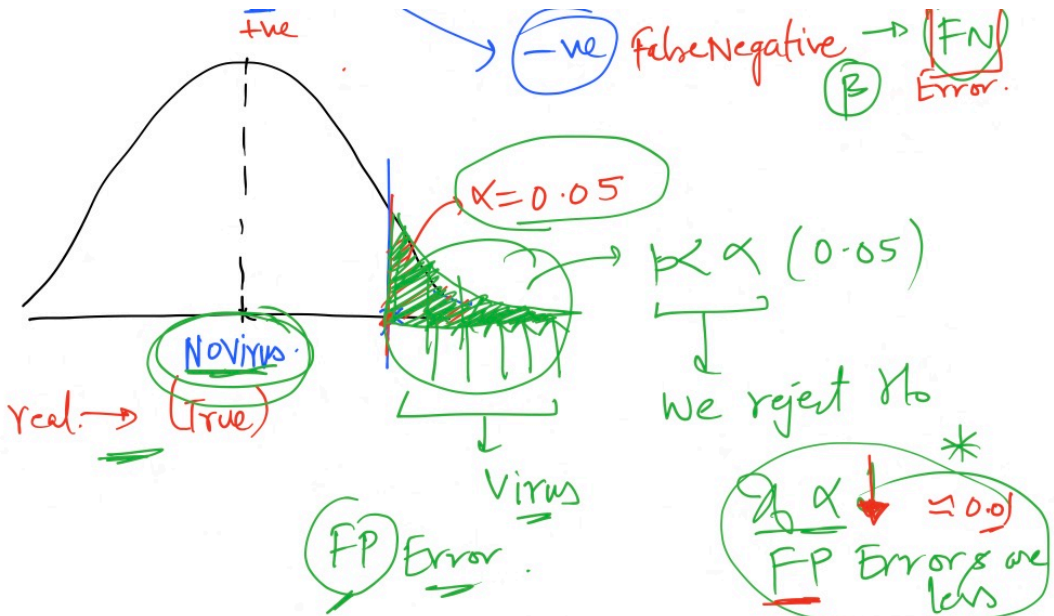 +ve
-ve False Negative → FN
β Error.
α = 0.05
p < α (0.05)
No Virus.
real. → (True)
We reject H0
Virus
If α ↓ ≈ 0.01
FP Error.
FP Errors are
less